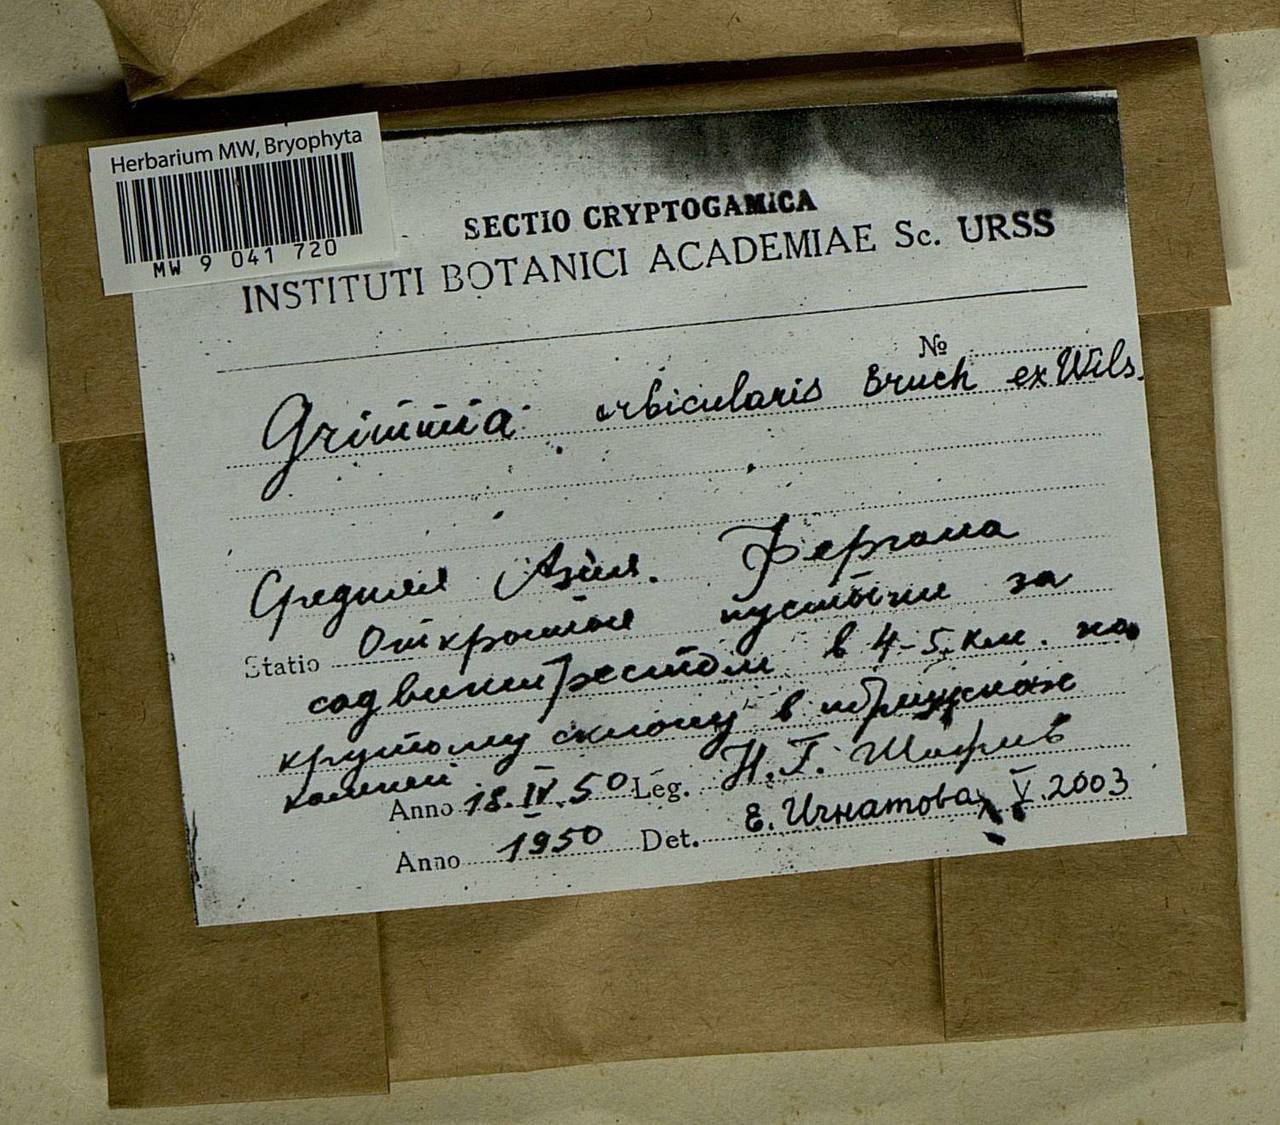 Herbarium MW, Bryophyta
MW 9 041 720
SECTIO CRYPTOGAMICA
INSTITUTI BOTANICI ACADEMIAE Sc. URSS
№
Grimmia orbicularis Bruch ex Wils.
Средняя Азия. Фергана
Statio Открытая пустыня за
в 4-5 км. на
крутому склону в
камней
Anno 18.IV.50 Leg. Н.Г.
Anno 1950 Det. Е. Игнатова V.2003